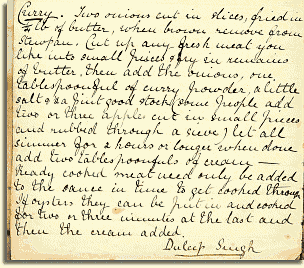 Curry. Two onions cut in slices, fried in
¼ lb of butter, when brown remove from
stewpan. Cut up any fresh meat you
like into small pieces & fry in remains
of butter, then add the onions, one
tablespoonful of curry powder, a little
salt & a pint good stock, some people add
two or three apples cut in small pieces
and rubbed through a sieve) let all
simmer for 2 hours or longer when done
add two tablespoonfuls of cream —
Ready cooked meat need only be added
to the sauce in time to get cooked through
If oysters they can be put in and cooked
for two or three minutes at the last and
then the cream added.
Duleep Singh